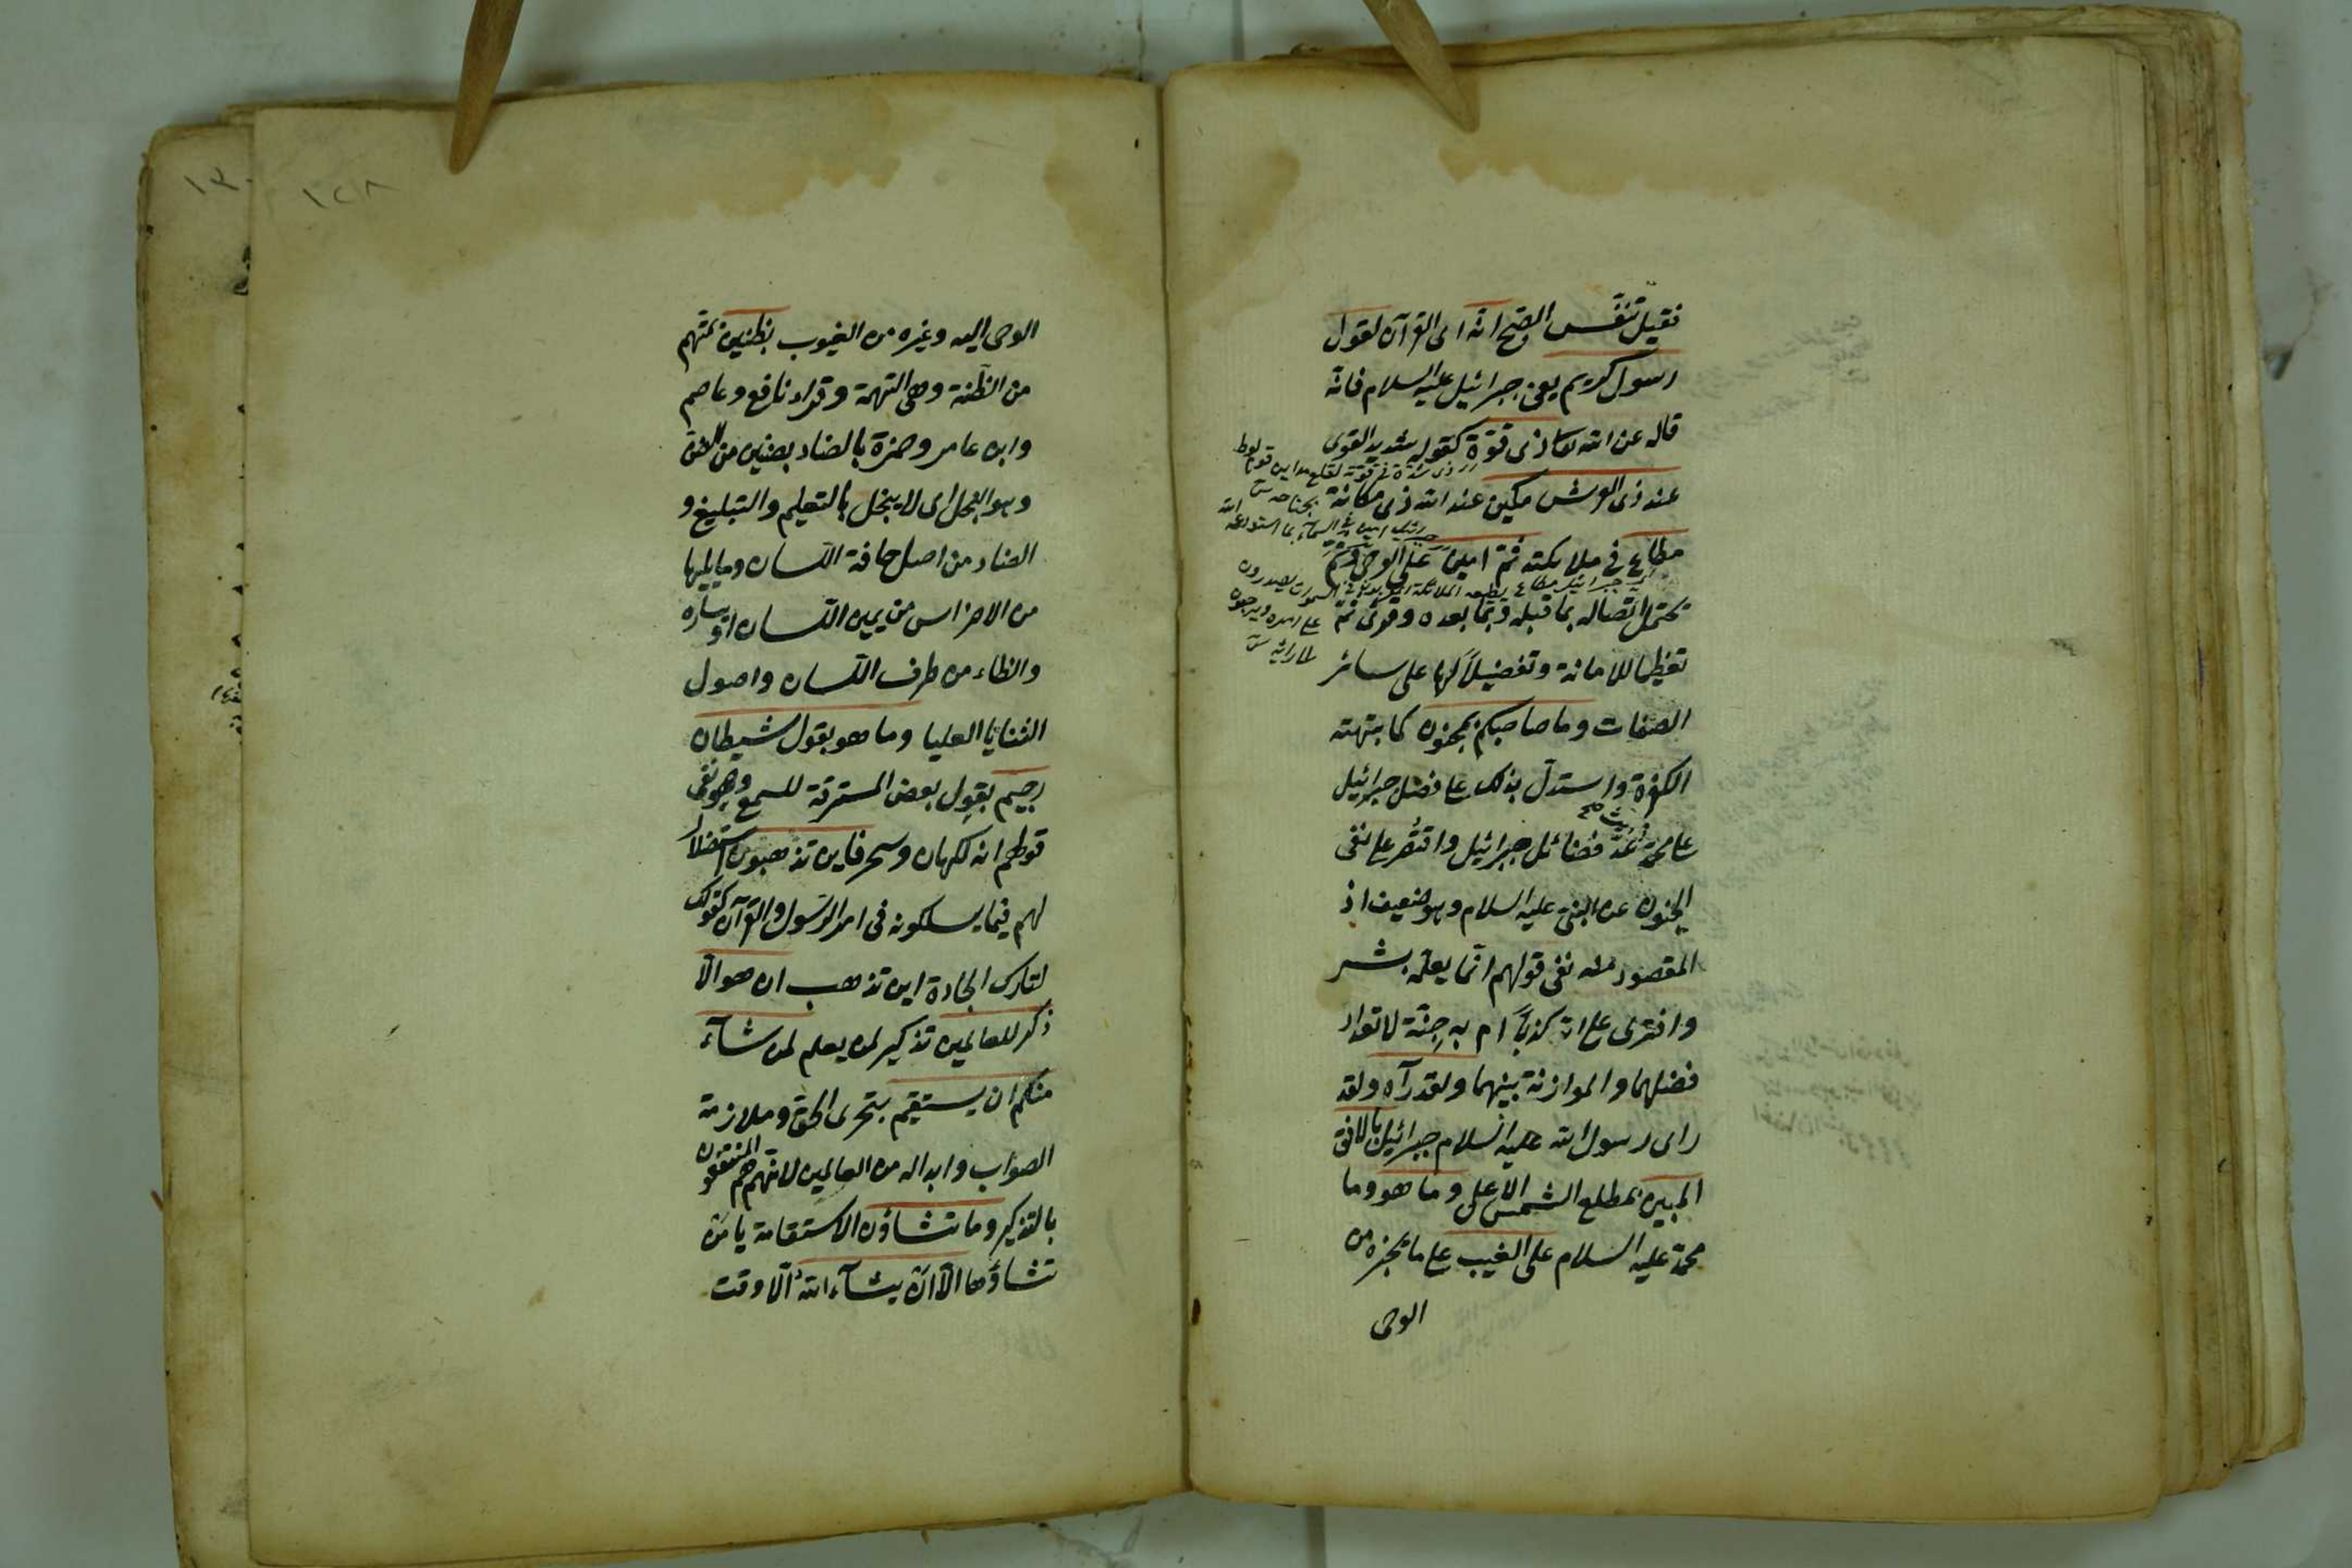 فقيل تنفس الصبح انه اى القرآن لقول
رسول كريم يعنى جبرائيل عليه السلام فانه
قاله عن الله تعا ذى قوة كقوله شديد القوى
عند ذى العرش مكين عند الله ذى مكانة
مطاع فى ملائكته ثم امين على الوحى وثم
تحتمل اتصاله بما قبله وبما بعده وقرئ ثم
تعظيما للامانة وتفضيلا لها على سائر
الصفات وما صاحبكم بمجنون كما بهتته
الكفرة واستدل بذلك على فضل جبرائيل
على محمد عد فضائل جبرائيل واقتصر على نفى
الجنون عن النبى عليه السلام وهو ضعيف اذ
المقصود منه نفى قولهم انما يعلمه بشر
وافترى على الله كذبا ام به جنة لا تعداد
فضلهما والموازنة بينهما ولقد رآه ولقد
راى رسول الله عليه السلام جبرائيل بالافق
المبين بمطلع الشمس الاعلى وما هو وما
محمد عليه السلام على الغيب على ما يخبره من
الوحى
١٢٨
الوحى اليه وغيره من الغيوب بظنين بمتهم
من الظنة وهى التهمة وقراء نافع وعاصم
وابن عامر وحمزة بالضاد بضنين من الضن
وهو البخل اى لا يبخل بالتعليم والتبليغ و
الضاد من اصل حافة اللسان وما يليها
من الاضراس من يمين اللسان او يساره
والظاء من طرف اللسان واصول
الثنايا العليا وما هو بقول شيطان
رجيم بقول بعض المسترقة للسمع وهو نفى
قولهم انه لكهان وسحر فاين تذهبون استضلال
لهم فيما يسلكونه فى امر الرسول والقرآن كقولك
لتارك الجادة اين تذهب ان هو الا
ذكر للعالمين تذكير لمن يعلم لمن شآء
منكم ان يستقيم بتحرى الحق وملازمة
الصواب وابداله من العالمين لانهم هم المنتفعون
بالتذكير وما تشاؤن الاستقامة يا من
تشاؤها الا ان يشآء الله الا وقت
١٣٠